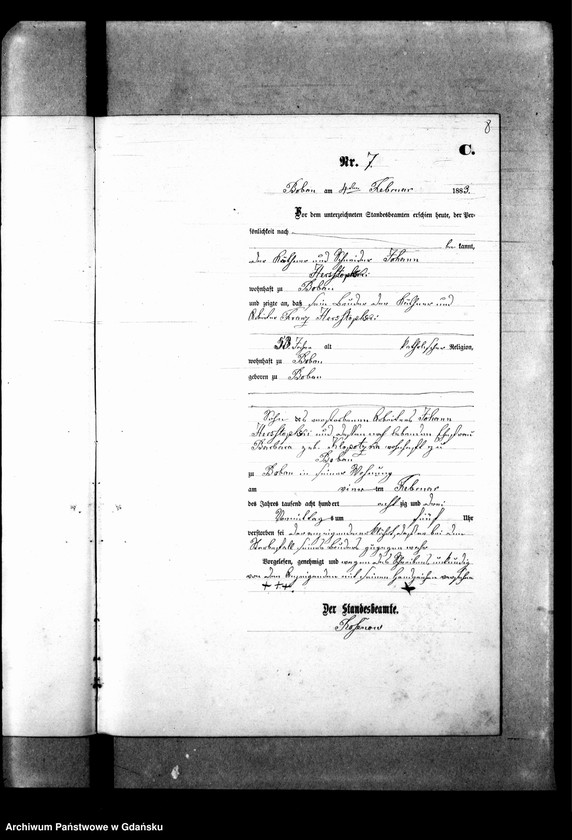 8
C.
Nr. 7
Boban am 4ten Februar 1883.
Vor dem unterzeichneten Standesbeamten erschien heute, der Per-
sönlichkeit nach
be kannt,
der Käthner und Schneider Johann
wohnhaft zu Boban
und zeigte an, daß sein Bruder der Käthner und
Arbeiter Franz
53 Jahre alt katholischer Religion,
wohnhaft zu Boban
geboren zu Boban
Sohn des verstorbenen Arbeiters Johann
und dessen noch lebenden Ehefrau
Barbara geb. wohnhaft zu
Boban
zu Boban in seiner Wohnung
am vierten Februar
des Jahres tausend acht hundert achtzig und drei
Vormittags um fünf Uhr
verstorben sei
Sterbefall seines Bruders zugegen
Vorgelesen, genehmigt und wegen des Schreibens unkundig
von dem Anzeigenden mit seinem Handzeichen versehen
+ + +
Der Standesbeamte.
Archiwum Państwowe w Gdańsku